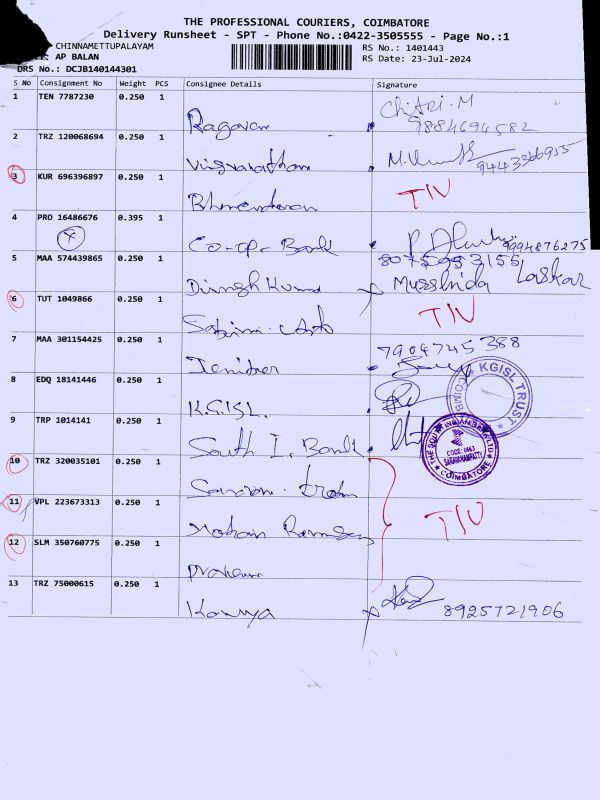 THE PROFESSIONAL COURIERS, COIMBATORE
Delivery Runsheet - SPT - Phone No.:0422-3505555 - Page No.:1
CHINNAMETTUPALAYAM RS No.: 1401443
: AP BALAN RS Date: 23-Jul-2024
DRS No.: DCJB140144301
S No Consignment No Weight PCS Consignee Details Signature
1 TEN 7787230 0.250 1 Ragavan Chitri.M
9884694582
2 TRZ 120068694 0.250 1 M.
9443366955
3 KUR 696396897 0.250 1 TIV
4 PRO 16486676 0.395 1 Co-op- Bank
9994876275
5 MAA 574439865 0.250 1 Dinesh Kumar 8075953155
Musshida Laskar
6 TUT 1049866 0.250 1 TIV
7 MAA 301154425 0.250 1 Jenifer 7904745388
8 EDQ 18141446 0.250 1 K.G.ISL.
KGISL TRUST
COIMB
9 TRP 1014141 0.250 1 South I. Bank
THE SOUTH INDIAN BANK LTD
CODE: 0463
SARAVANAMPATTY
COIMBATORE
10 TRZ 320035101 0.250 1
11 VPL 223673313 0.250 1 TIV
12 SLM 350760775 0.250 1
13 TRZ 75000615 0.250 1 Kavya
8925721906